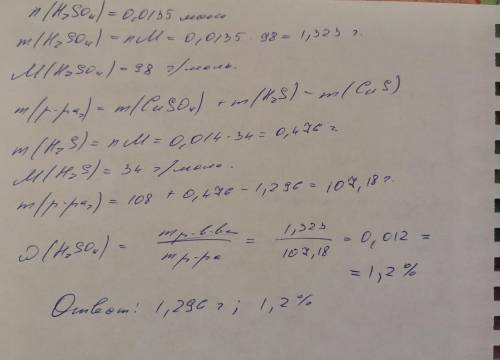 n(H₂SO₄) = 0,0135 моль
m(H₂SO₄) = nM = 0,0135 · 98 = 1,323 г.
M(H₂SO₄) = 98 г/моль.
m(р-ра₂) = m(CuSO₄) + m(H₂S) - m(CuS)
m(H₂S) = nM = 0,014 · 34 = 0,476 г
M(H₂S) = 34 г/моль.
m(р-ра₂) = 108 + 0,476 - 1,296 = 107,18 г.
ω(H₂SO₄) = mр.в-ва / mр-ра = 1,323 / 107,18 = 0,012 =
= 1,2%
Ответ: 1,296 г ; 1,2%